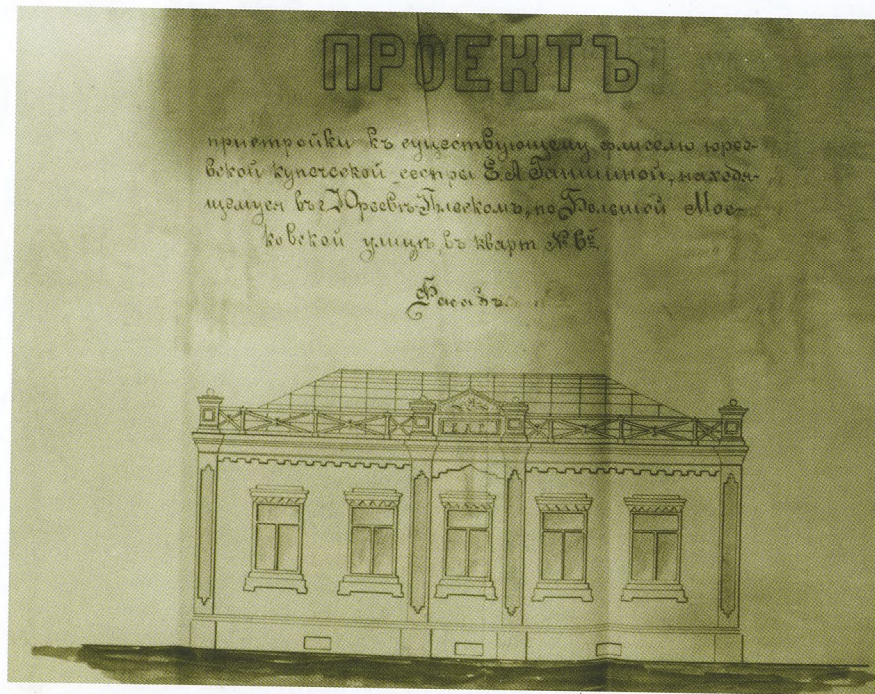 ПРОЕКТЪ
пристройки къ существующему флигелю юрьев-
вской купеческой сестры Е. А. Ганшиной, находя-
щемуся въ г. Юрьевѣ-Польскомъ, по Большой Мос-
ковской улицѣ, въ кварт. № 6й
Фасадъ.
Е.А.Г.